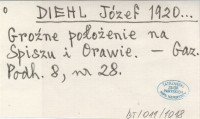 DIEHL Józef 1920...
Groźne położenie na
Spiszu i Orawie. – Gaz.
Podh. 8, nr 28.